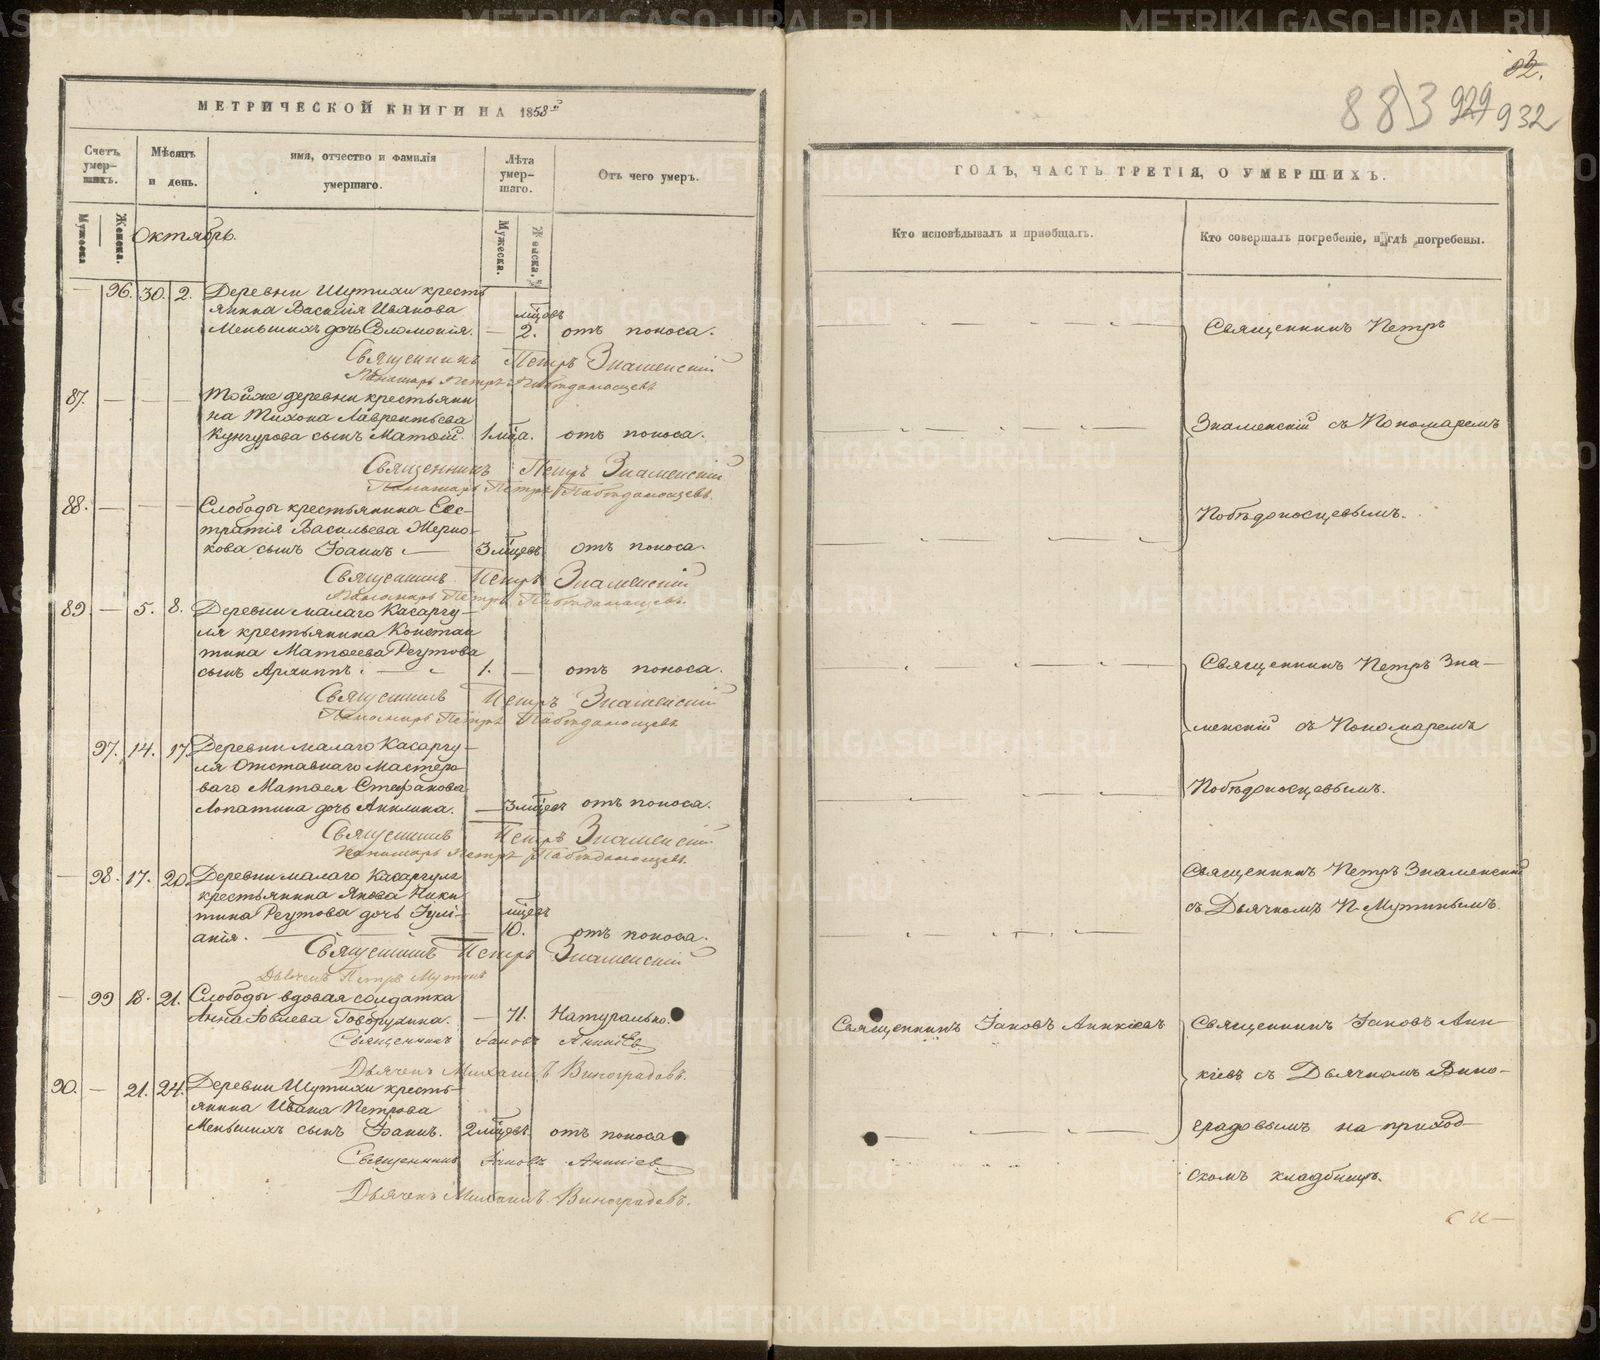 METRIKI.GASO-URAL.RU
МЕТРИЧЕСКОЙ КНИГИ НА 1858й
Счетъ умер-шихъ.
Мѣсяцъ и день.
имя, отчество и фамилія умершаго.
Лѣта умер-шаго.
Отъ чего умеръ.
Мужеска
Женска.
Октябрь.
Мужеска.
Женска.
96. 30. 2. Деревни Шутихи кресть
янина Василія Иванова мѣцовъ
Меньшихъ дочь Соломонія. — 2. отъ поноса.
Священникъ Петръ Знаменскій
Пономарь Петръ Побѣдоносцевъ
87. — — — Тойже деревни крестьяни
на Тихона Лаврентьева
Кунгурова сынъ Матѳій. 1 мѣца. отъ поноса.
Священникъ Петръ Знаменскій
Пономарь Петръ Побѣдоносцевъ.
88. — — — Слободы крестьянина Евс-
тратія Васильева Жерно-
кова сынъ Іоаннъ — 3 мѣцевъ отъ поноса.
Священникъ Петръ Знаменскій
Пономарь Петръ Побѣдоносцевъ.
89. — 5. 8. Деревни малаго Касаргу-
ля крестьянина Констан
тина Матѳеева Реутова
сынъ Архиппъ. — 1. — отъ поноса.
Священникъ Петръ Знаменскій
Пономарь Петръ Побѣдоносцевъ
97. 14. 17. Деревни малаго Касаргу-
ля Отставнаго Мастеро-
ваго Матѳея Стефанова
Лопатина дочь Акилина. — 3 мѣцевъ отъ поноса.
Священникъ Петръ Знаменскій
Пономарь Петръ Побѣдоносцевъ.
— 98. 17. 20. Деревни малаго Касаргуля
крестьянина Якова Ники
тина Реутова дочь Іулі- мѣцевъ
анія. — 10. отъ поноса.
Священникъ Петръ Знаменскій
Дьячекъ Петръ Мутинъ
— 99 18. 21. Слободы вдовая солдатка
Анна Іовлева Говорухина. — 71. Натурально.
Священникъ Іаковъ Аникіев
Дьячекъ Михаилъ Виноградовъ.
90. — 21. 24. Деревни Шутихи кресть-
янина Ивана Петрова
Меньшихъ сынъ Іоаннъ. 2 мѣцевъ. отъ поноса
Священникъ Іаковъ Аникіев
Дьячекъ Михаилъ Виноградовъ.
883 929 932
ГОДЪ, ЧАСТЬ ТРЕТІЯ, О УМЕРШИХЪ.
Кто исповѣдывалъ и пріобщалъ.
Кто совершалъ погребеніе, и гдѣ погребены.
Священникъ Петръ
Знаменскій съ Пономаремъ
Побѣдоносцевымъ.
Священникъ Петръ Зна-
менскій съ Пономаремъ
Побѣдоносцевымъ.
Священникъ Петръ Знаменскій
съ Дьячкомъ П. Мутинымъ.
Священникъ Іаковъ Аникіевъ
Священникъ Іаковъ Ани-
кіевъ съ Дьячкомъ Вино-
градовымъ на приход-
скомъ кладбищѣ.